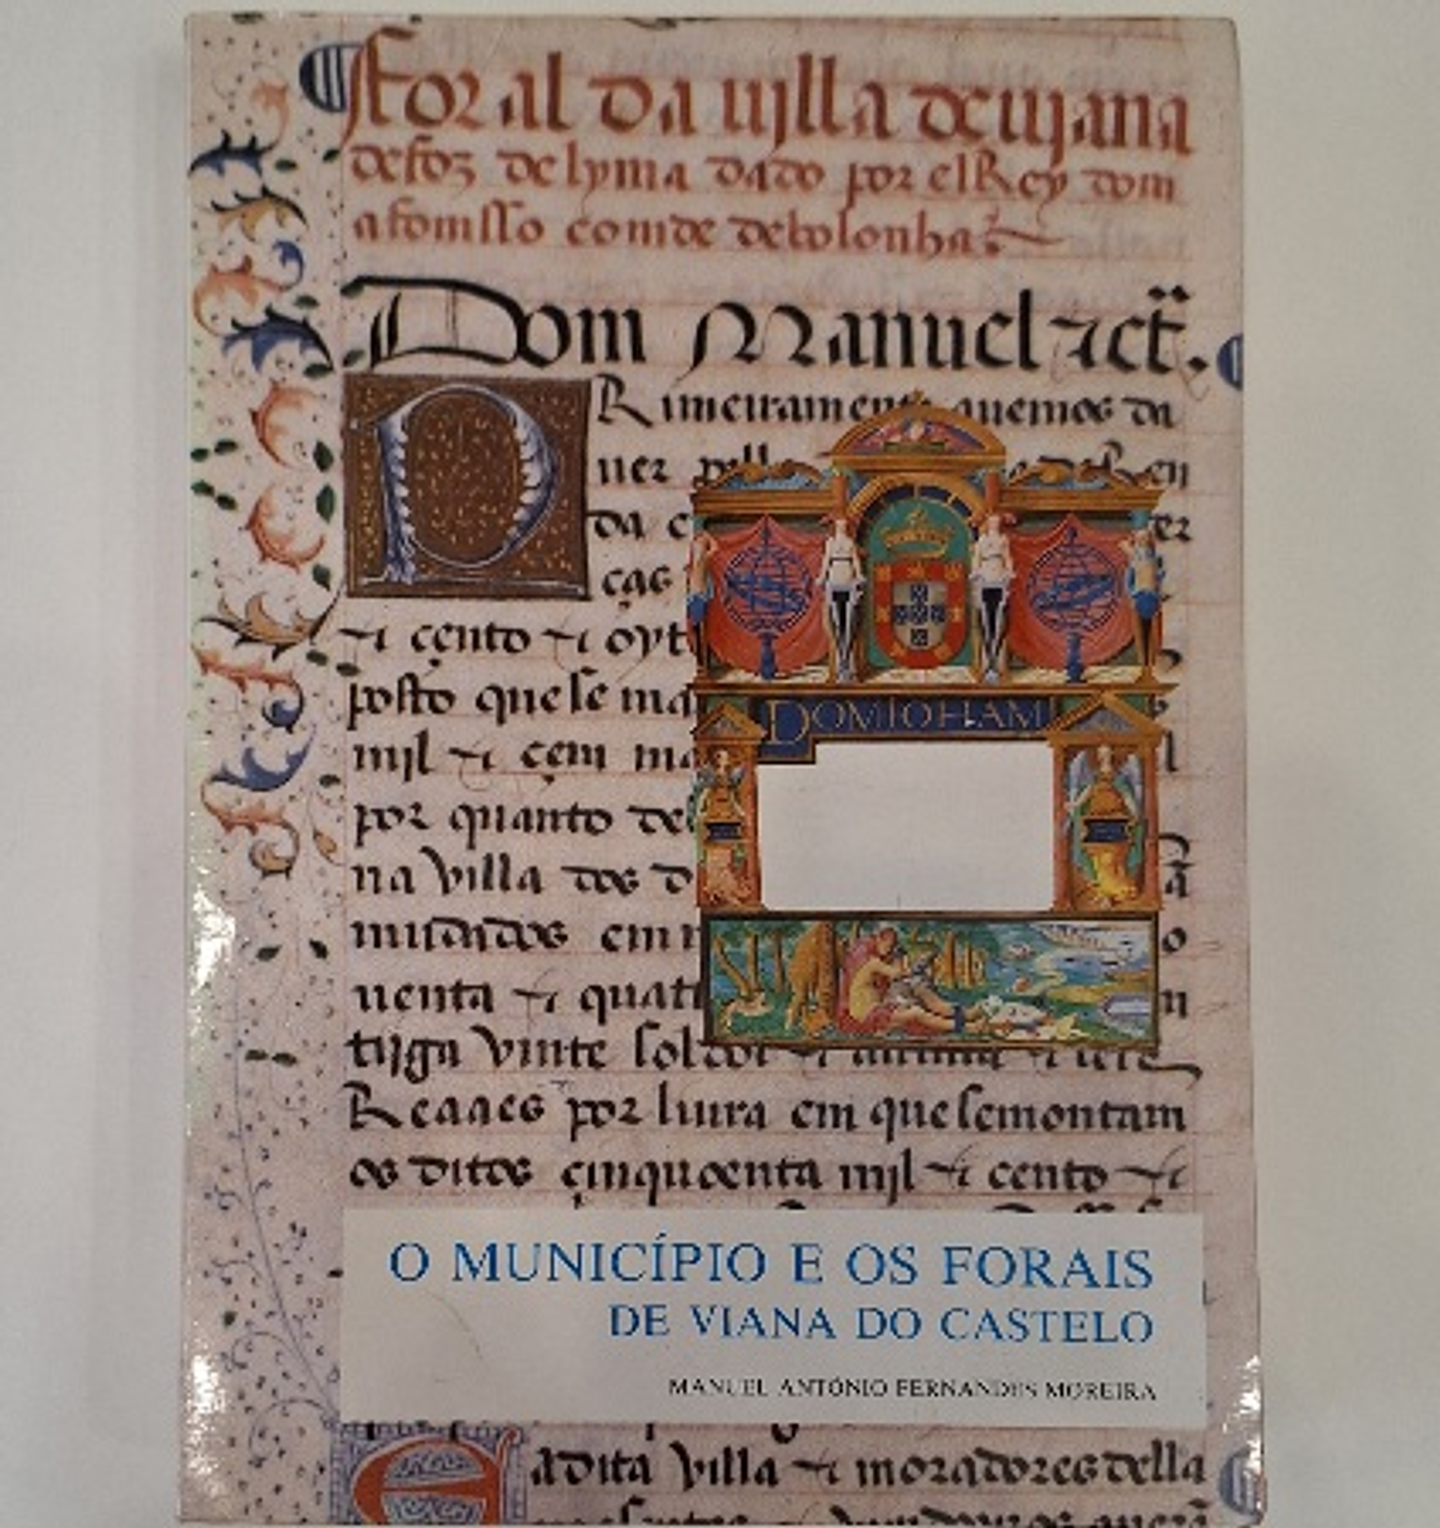 foral da uilla de uiana
de foz de lyma dado por el Rey dom
afomsso comde de bolonha
Dom Manuel &ct.
PRimeiramente auemos da
uer
da
ças
& çento & oyt
posto que se ma
mjl & çem ma
por quanto de
na villa dos d
mudados em
uenta & quat
tijga vinte soldos &
Reaaes por liura em que se montam
os ditos çinquoenta mjl & cento &
DOM IOHAM
O MUNICÍPIO E OS FORAIS
DE VIANA DO CASTELO
MANUEL ANTÓNIO FERNANDES MOREIRA
adita villa & moradores della